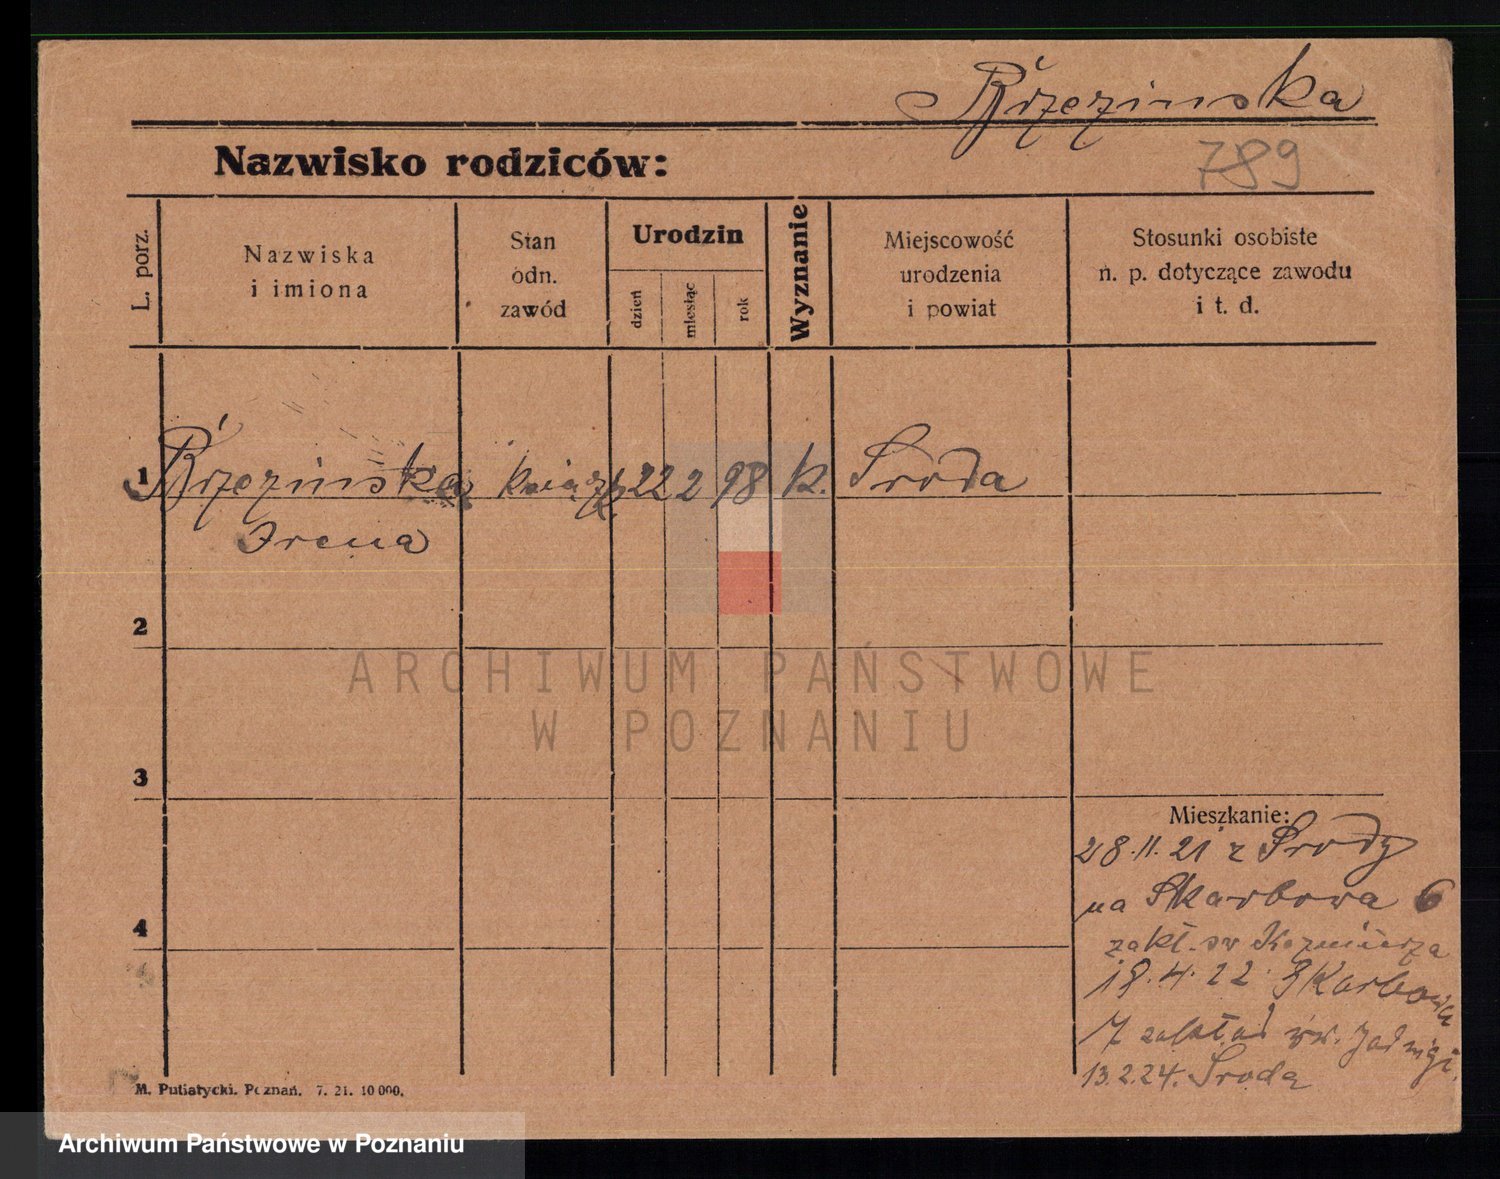 Brzezinska
789
Nazwisko rodziców:
L. porz.
Nazwiska
i imiona
Stan
odn.
zawód
Urodzin
dzień
miesiąc
rok
Wyznanie
Miejscowość
urodzenia
i powiat
Stosunki osobiste
n. p. dotyczące zawodu
i t. d.
1 Brzezinska 22 2 98 k. Sroda
Irena
2
3
4
ARCHIWUM PAŃSTWOWE
W POZNANIU
Mieszkanie:
28.11.21 z Srody
na Skarbowa 6
zakł. sw Kazmierza
18.4.22 Skarbowa
7 zakład św. Jadwigi.
13.2.24. Sroda
M. Putiatycki. Poznań. 7. 21. 10 000.
Archiwum Państwowe w Poznaniu